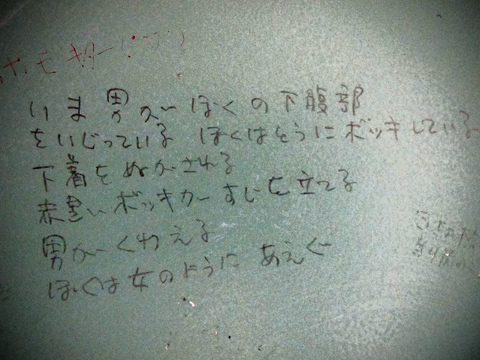 ホモ
いま男がぼくの下腹部
をいじっている ぼくはそうにボッキしている
下着をぬがされる
赤黒いボッキがすじを立てる
男がくわえる
ぼくは女のようにあえぐ